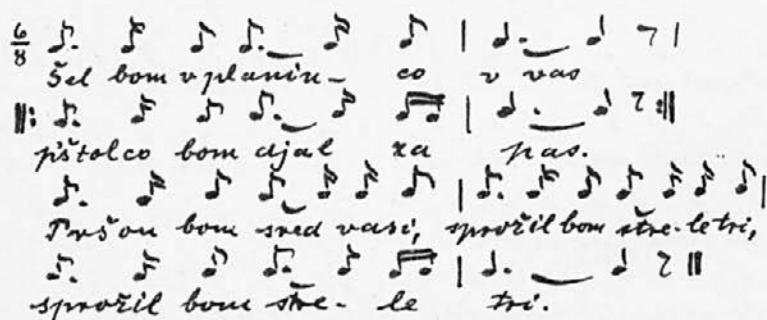 6/8
Šel bom v planin- co v vas
pištolco bom djal za pas.
Pršou bom sred vasi, sprožil bom štre-le tri,
sprožil bom štre- le tri.